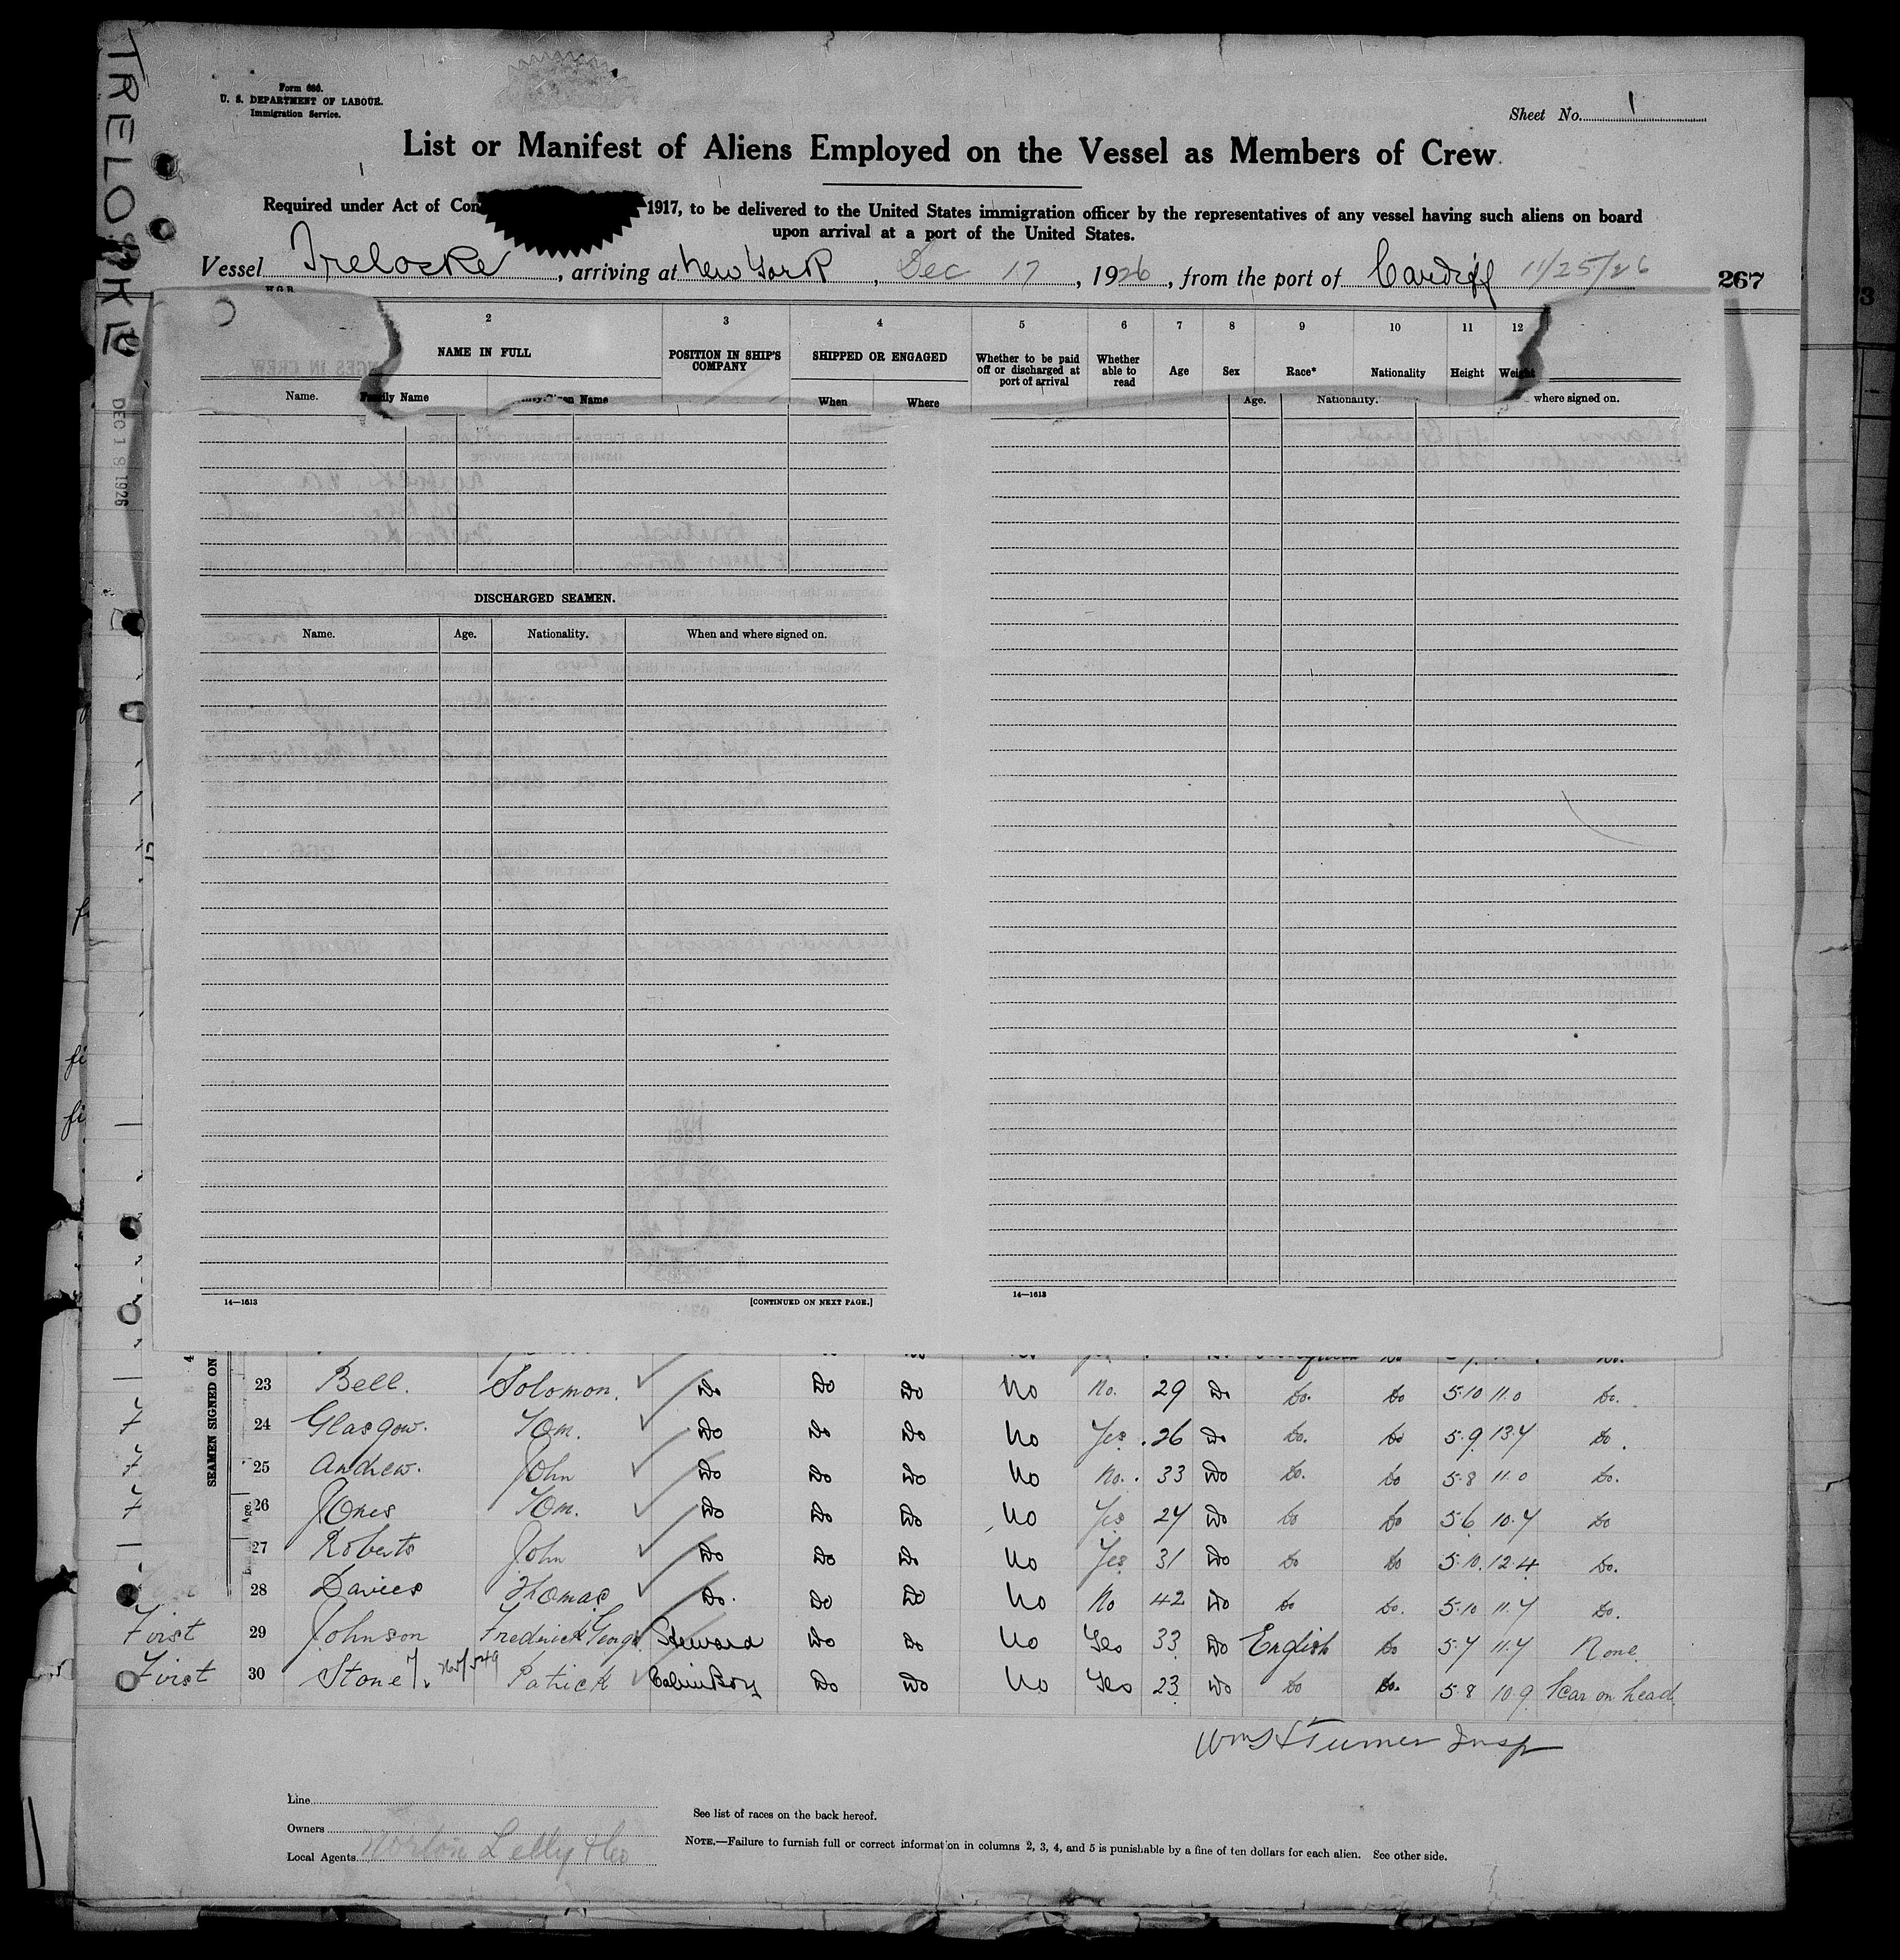 TRELOSKE
DEC 18 1926
Form 680.
U. S. DEPARTMENT OF LABOUR.
Immigration Service.
Sheet No. 1
List or Manifest of Aliens Employed on the Vessel as Members of Crew.
Required under Act of Con 1917, to be delivered to the United States immigration officer by the representatives of any vessel having such aliens on board
upon arrival at a port of the United States.
Vessel Treloske, arriving at New York, Dec 17, 1926, from the port of Cardiff 11/25/26
267
2 3 4 5 6 7 8 9 10 11 12
NAME IN FULL POSITION IN SHIP'S COMPANY SHIPPED OR ENGAGED Whether to be paid off or discharged at port of arrival Whether able to read Age Sex Race* Nationality Height Weight
Name. Family Name Given Name When Where Age. Nationality. where signed on.
DISCHARGED SEAMEN.
Name. Age. Nationality. When and where signed on.
14—1613 [CONTINUED ON NEXT PAGE.] 14—1613
SEAMEN SIGNED ON
Age.
23 Bell. Solomon. Do Do Do No No. 29 Do Do. Do 5.10 11.0 Do.
7 24 Glasgow. Tom. Do Do Do No Yes. 26 Do Do. Do 5.9 13.7 Do.
7 25 Andrew. John Do Do Do No No. 33 Do Do. Do 5.8 11.0 Do.
7 26 Jones Tom. Do Do Do No Yes 27 Do Do Do 5.6 10.7 Do
27 Roberts John Do Do Do No Yes 31 Do Do Do 5.10. 12.4 Do.
28 Davies Thomas Do. Do Do No No 42 Do Do Do. 5.10 11.7 Do.
First 29 Johnson Frederick George Steward Do Do No Yes 33 Do English Do 5.7 11.7 None.
First 30 Stone 765/549 Patrick Cabin Boy Do Do No Yes 23 Do Do Do. 5.8 10.9 Scar on head.
Wm S Turner Insp
Line
Owners
Local Agents Norton Lilly & Co
See list of races on the back hereof.
NOTE.—Failure to furnish full or correct information in columns 2, 3, 4, and 5 is punishable by a fine of ten dollars for each alien. See other side.